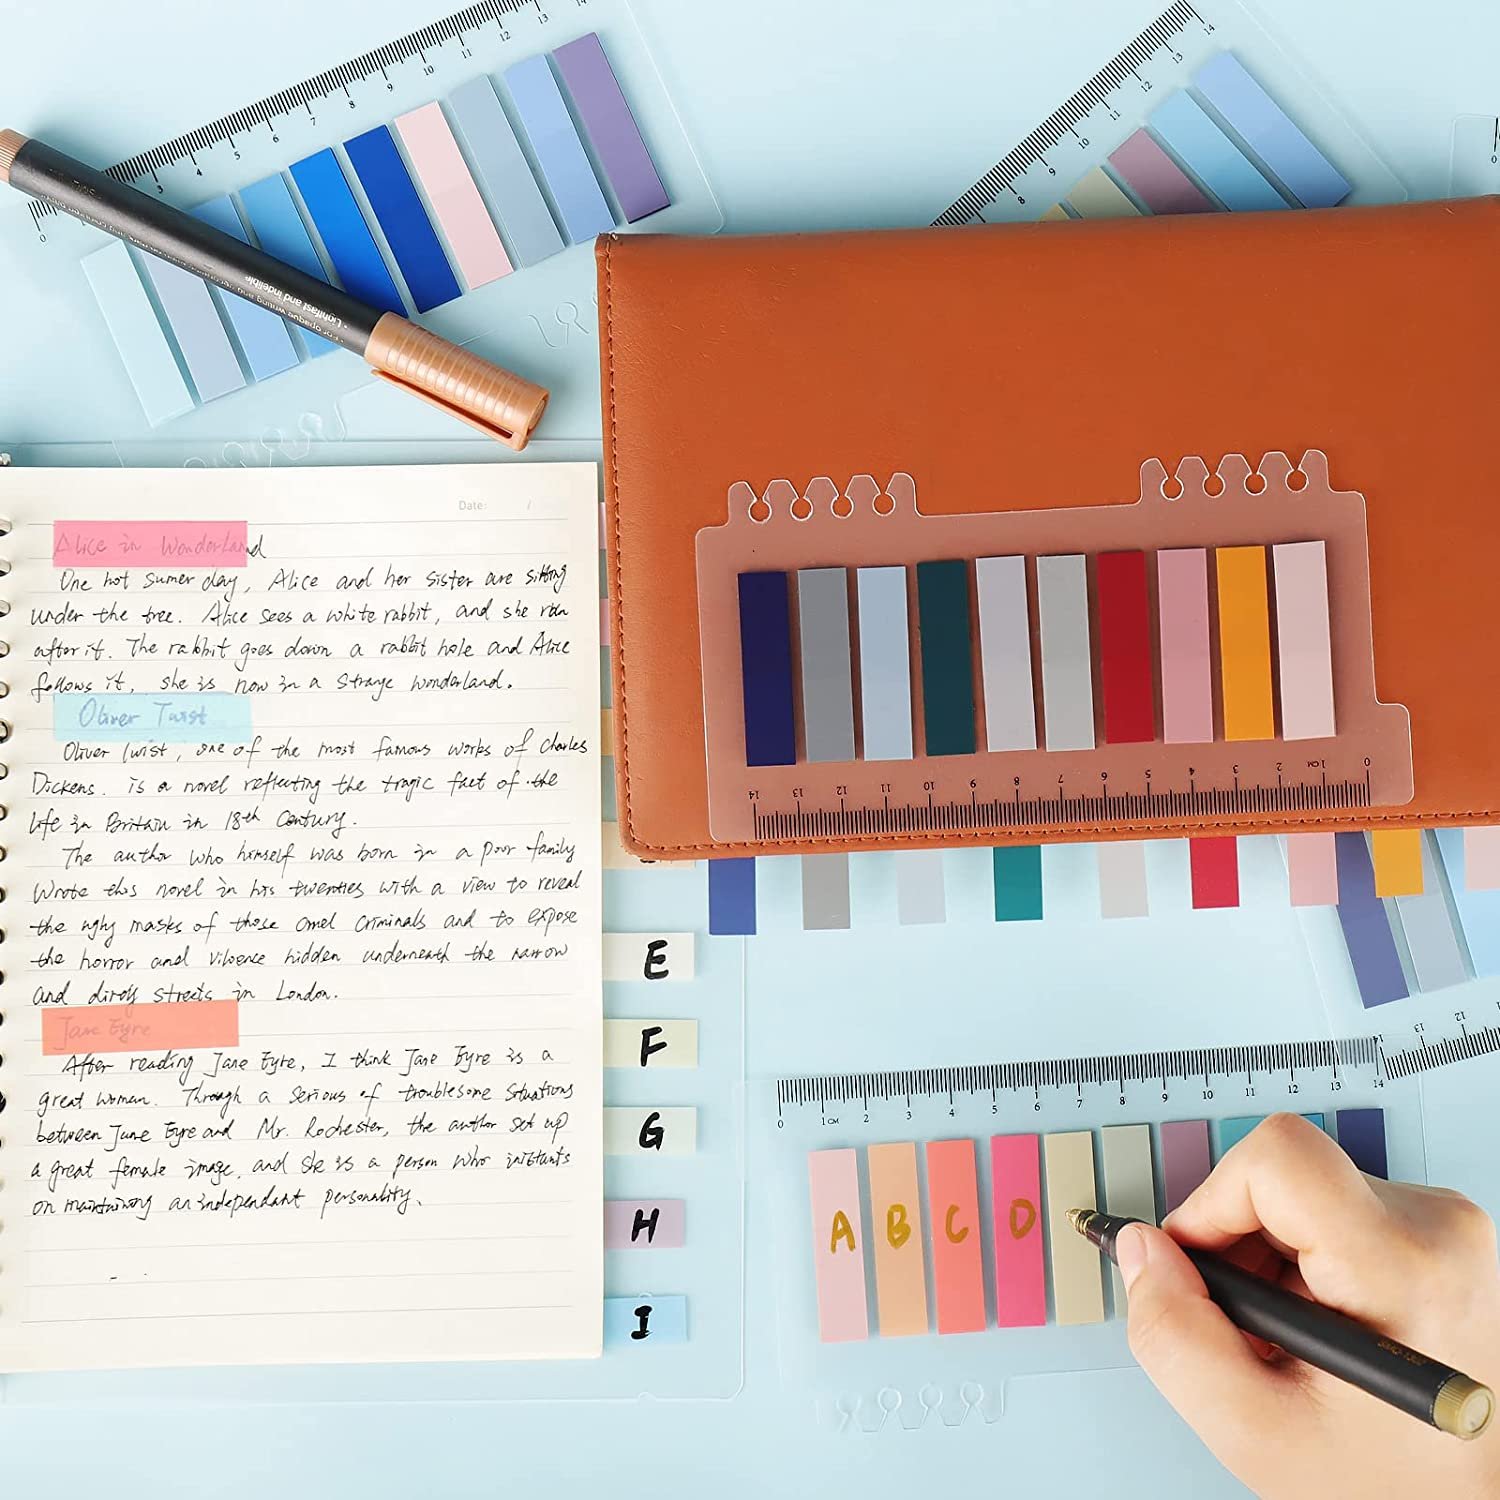 0 3 4 5 6 7 8 9 10 11 12 13 14
8 9 11 12 13 14
• Lightfast and indelible
• For opaque writing and
Date: /
Alice in Wonderland
One hot sumer day, Alice and her sister are sitting
under the tree. Alice sees a white rabbit, and she run
after it. The rabbit goes down a rabbit hole and Alice
follows it, she is now in a strange wonderland.
Oliver Twist
Oliver Twist, one of the most famous works of Charles
Dickens. is a novel reflecting the tragic fact of the
life in Britain in 18th Century.
The author who himself was born in a poor family
wrote this novel in his twenties with a view to reveal
the ugly masks of those cruel criminals and to expose
the horror and viloence hidden underneath the narrow
and dirty streets in London.
Jane Eyre
After reading Jane Eyre, I think Jane Eyre is a
great woman. Through a serious of troublesome situations
between Jane Eyre and Mr. Rochester, the author set up
a great female image, and she is a person who
on an independant personality.
E
F
G
H
I
14 13 12 11 10 9 8 7 6 5 4 3 2 1CM 0
14 13 12
0 1CM 2 3 4 5 6 7 8 9 10 11 12 13 14
A B C D